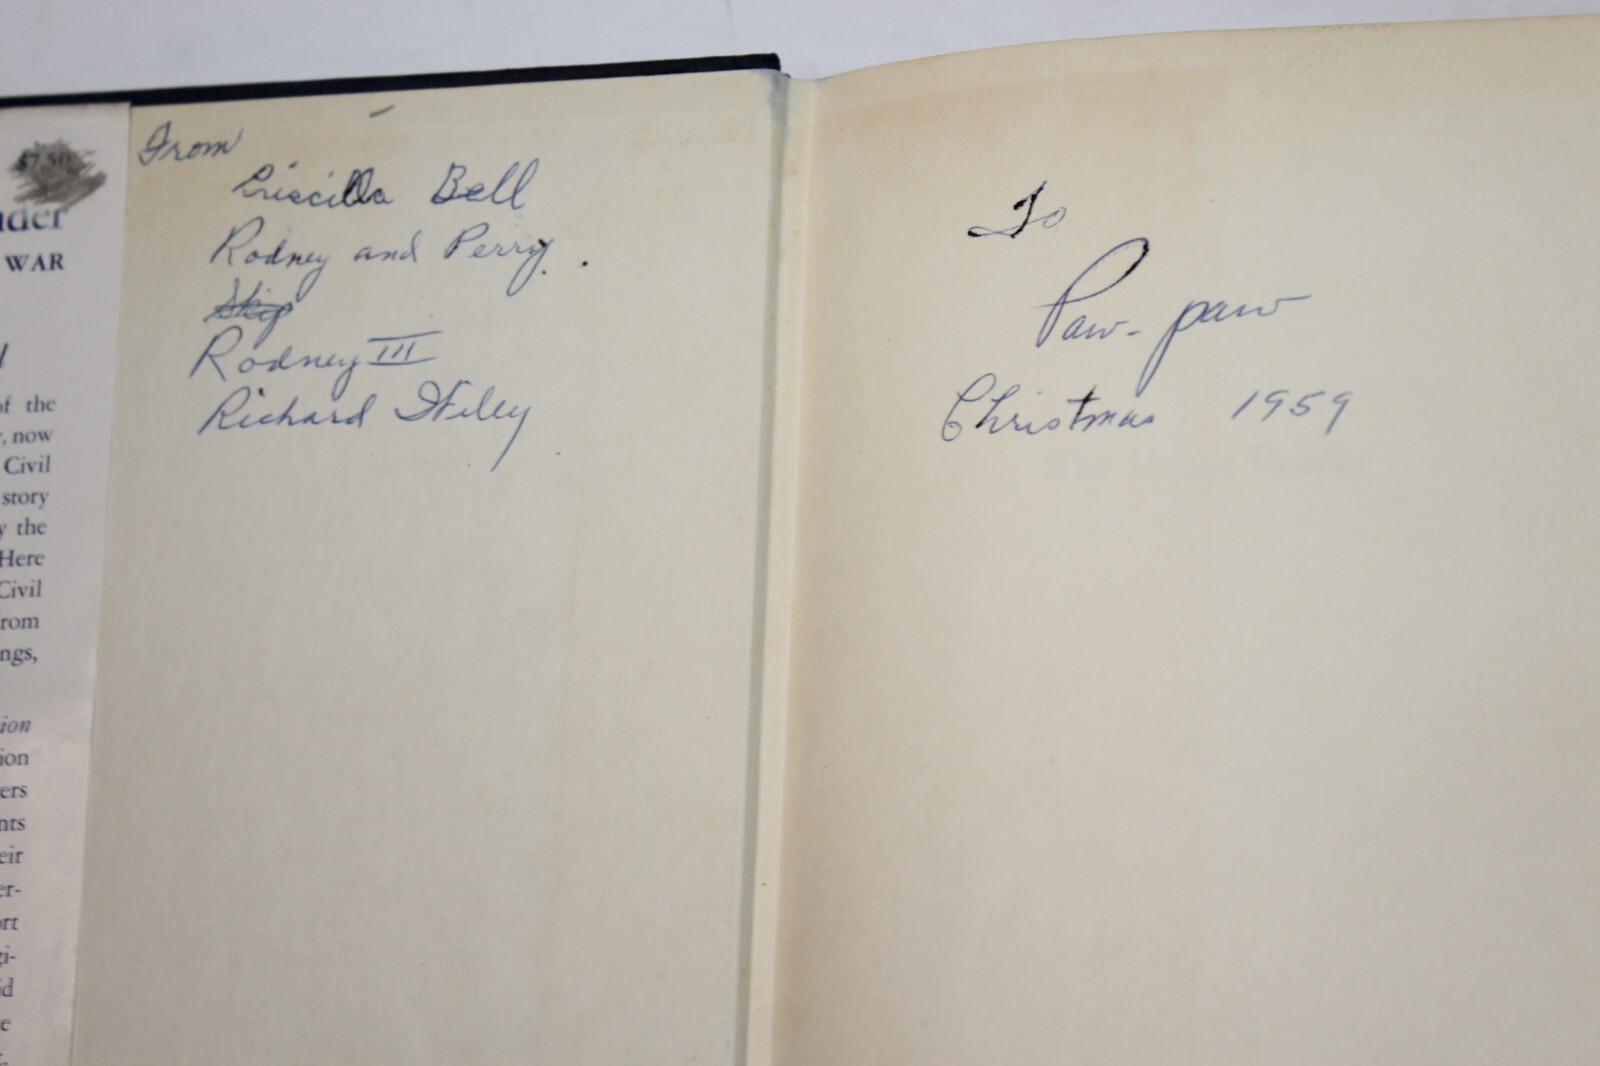 $7.50
nder
WAR
of the
, now
Civil
story
y the
Here
Civil
from
ngs,
ion
ion
ers
nts
eir
er-
ort
gi-
id
e
From
Priscilla Bell
Rodney and Perry.
Skip
Rodney III
Richard Wiley
To
Paw-paw
Christmas 1959